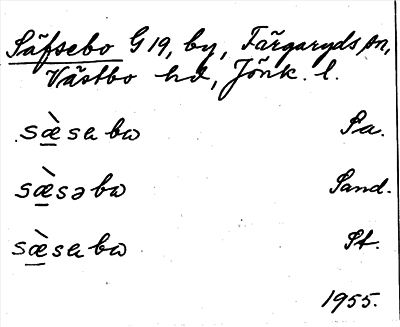 Säfsebo G 19, by, Färgaryds sn,
Västbo hd, Jönk. l.
sæ̀sabω Sa.
sæ̀səbω Sand.
sæ̀sabω St.
1955.